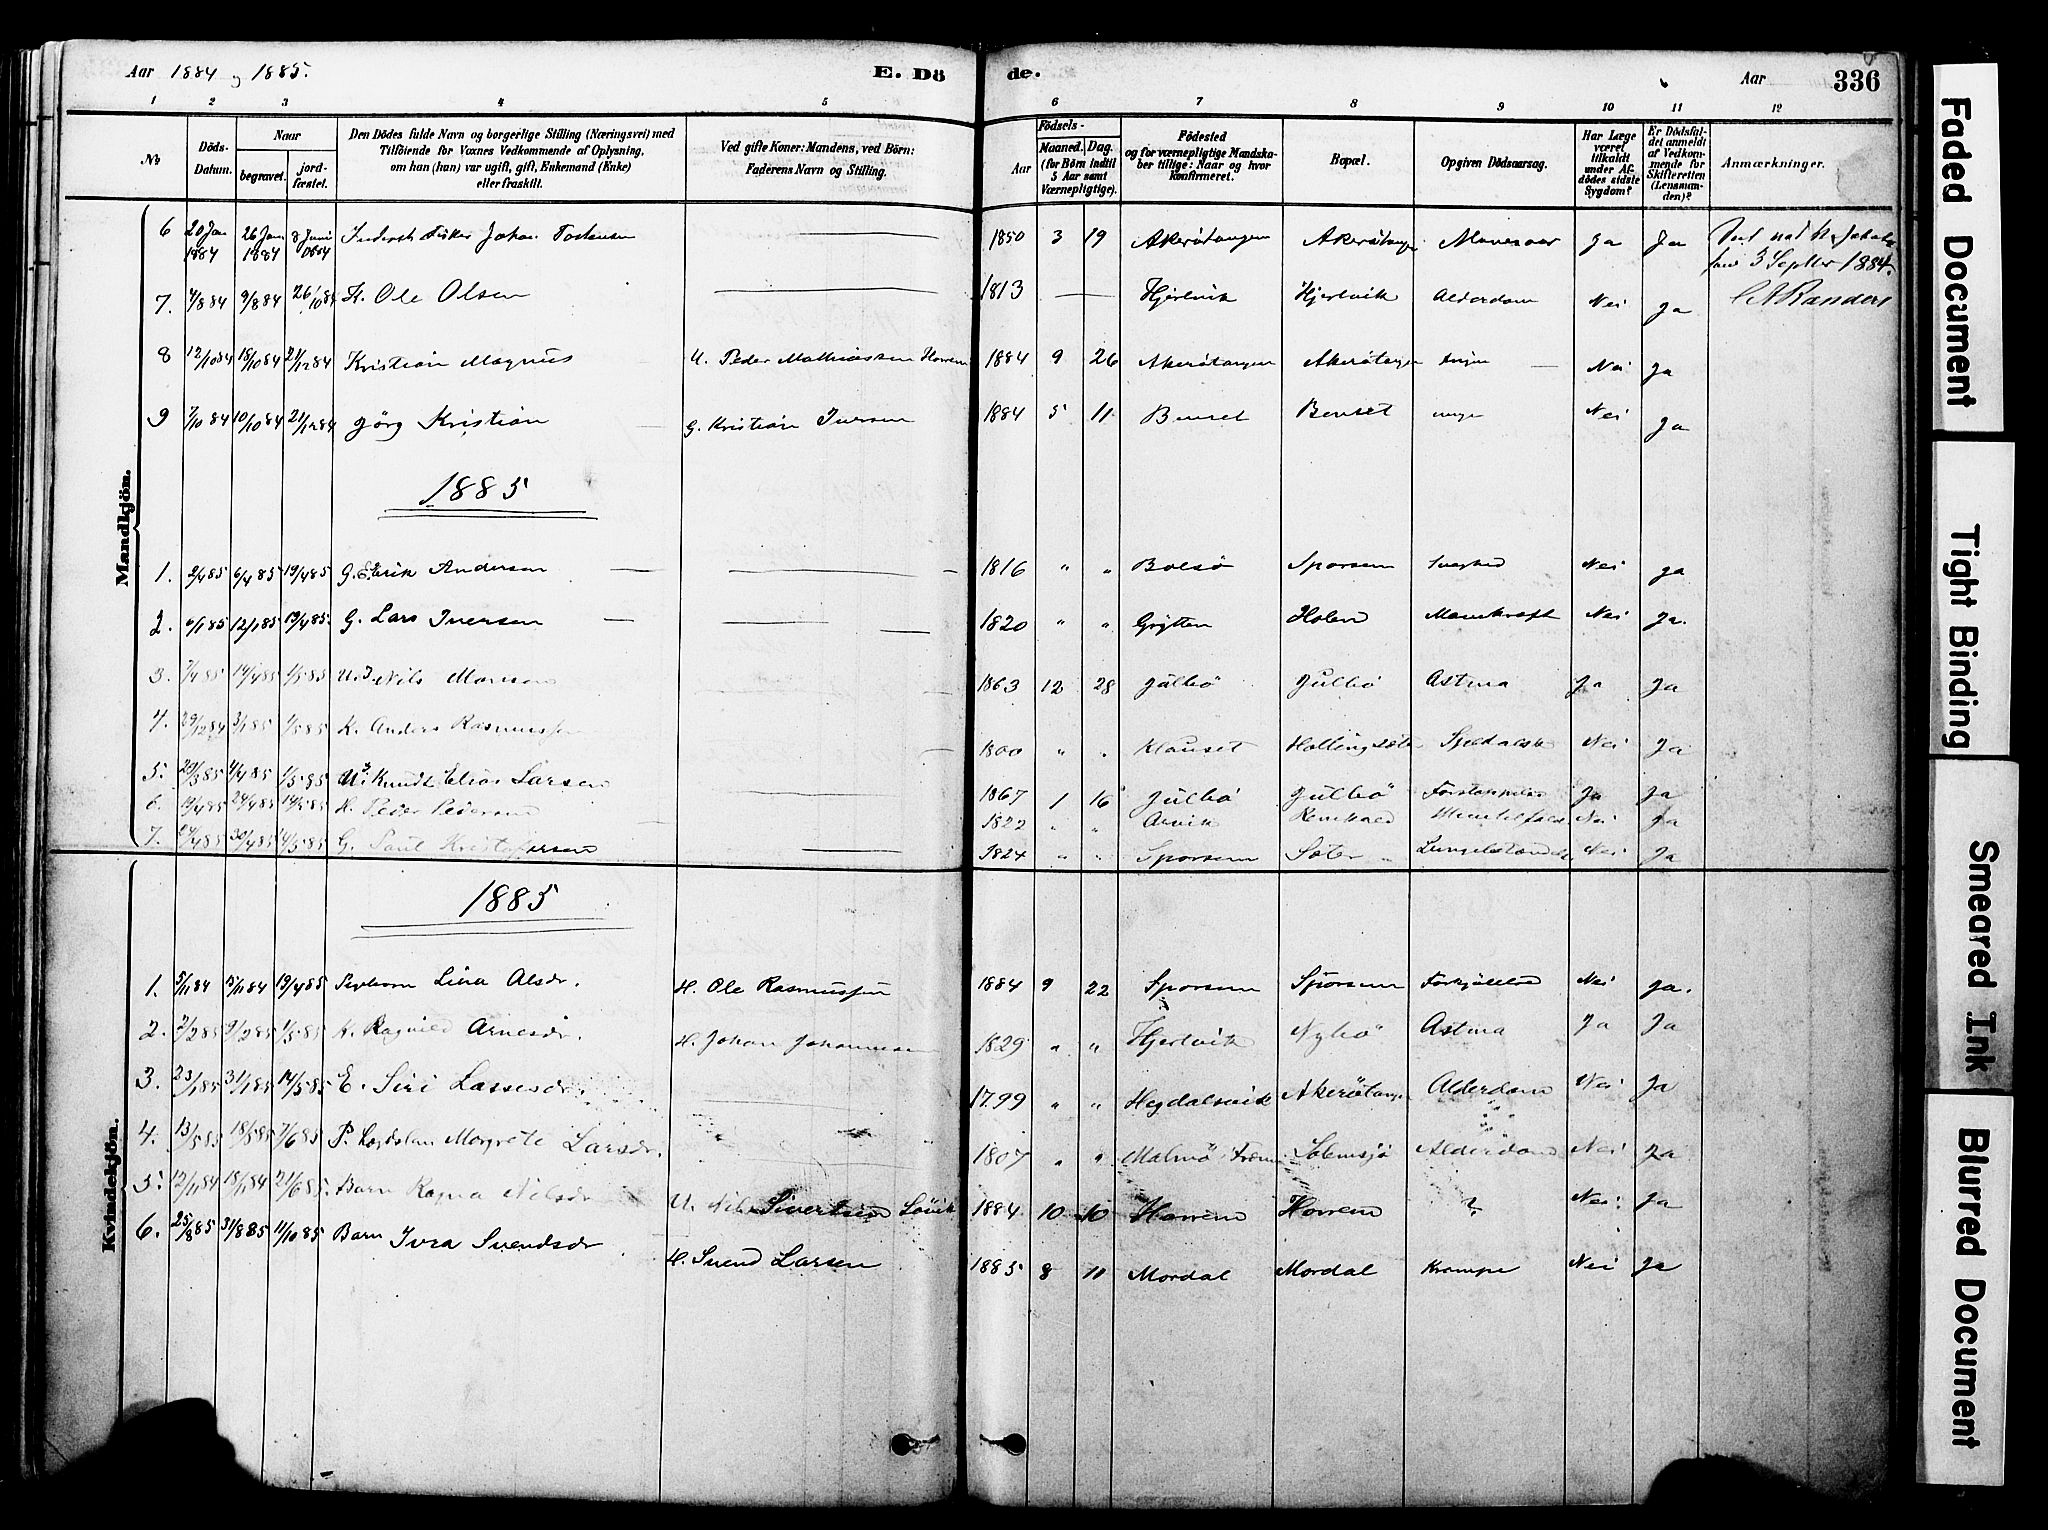 Aar 1884 og 1885. E. Dö
de. Aar 336
1 2 3 4 5 6 7 8 9 10 11 12
No
Döds-Datum.
Naar
begravet.
jord-fæstet.
Den Dödes fulde Navn og borgerlige Stilling (Næringsvei) med
Tilföiende for Voxnes Vedkommende af Oplysning,
om han (hun) var ugift, gift, Enkemand (Enke)
eller fraskilt.
Ved gifte Koner: Mandens, ved Börn:
Faderens Navn og Stilling.
Födsels-
Aar
Maaned. Dag.
(for Börn indtil
5 Aar samt
Værnepligtige).
Födested
og for værnepligtige Mandska-
ber tillige: Naar og hvor
Konfirmeret.
Bopæl.
Opgiven Dödsaarsag.
Har Læge
været
tilkaldt
under Af-
dödes sidste
Sygdom?
Er Dödsfal-
det anmeldt
af Vedkom-
mende for
Skifteretten
(Lensman-
den)?
Anmærkninger.
Mandkjön.
6 20 Jan 1884 26 Jan 1884 8 Juni 1884 Inderst Fisker Johan 1850 3 19 Akerötangen Akerötangen Mavesaar Ja Ja
3 Septbr 1884.
7. 4/8 84 9/8 84 26/10 84 K. Ole Olsen 1813 Hjertvik Hjertvik Alderdom Nei Ja CARanders
8 12/10 84 18/10 84 21/12 84 Kristian Magnus U. Peder Mathiassen Horrem 1884 9 26 Akerötangen Akerötangen Nei Ja
9 7/10 84 10/10 84 21/12 84 Jörg Kristian G. Kristian Iversen 1884 5 11 Beuset Beuset Nei Ja
1885
1. 2/4 85 6/4 85 19/4 85 G. Erik Andersen 1816 " " Bolsö Sporsem Nei Ja
2. 6/1 85 12/1 85 19/4 85 G. Lars Iversen 1820 " " Grytten Holen Nei Ja.
3. 7/4 85 14/4 85 1/5 85 Nils 1863 12 28 Julbö Julbö Astma Ja Ja
4. 29/12 84 3/1 85 1/5 85 K. Anders Rasmussen 1800 " " Klauset Nei Ja
5. 4/4 85 1/5 85 Knudt Elias Larsen 1867 1 16 Julbö Julbö Ja Ja
6. 19/4 85 24/4 85 14/5 85 K. Peder Pedersen 1822 " " Nei Ja
7. 30/4 85 G. Paul Kristofersen 1824 " " Sporsem Sæter Nei Ja
Kvindekjön.
1885
1. 5/11 84 19/4 85 Lina Olsdr. H. Ole Rasmussen 1884 9 22 Sporsem Sporsem Forkjölelse Nei Ja.
2. 2/2 85 9/2 85 1/5 85 K. Ragnild Arnesdr. H. Johan Johannesen 1829 " " Hjertvik Nybö Astma Ja Ja
3. 23/1 85 31/1 85 14/5 85 E. Siri Lassesdr. 1799 " " Hegdalsvik Akerötangen Alderdom Nei Ja
4. 13/5 85 18/5 85 7/6 85 Margrete Larsdr. 1807 " " Malmö, Fræn Solemsjö Alderdom Nei Ja
5. 12/11 84 18/11 84 21/6 85 Barn Ragna Nilsdr U. Nils Sivertsen Lövik 1884 10 10 Horrem Horrem ? Nei Ja
6. 25/8 85 31/8 85 11/10 85 Barn Ivra Svendsdr H. Svend Larsen 1885 8 11 Mordal Mordal Krampe Nei Ja
Faded Document
Tight Binding
Smeared Ink
Blurred Document